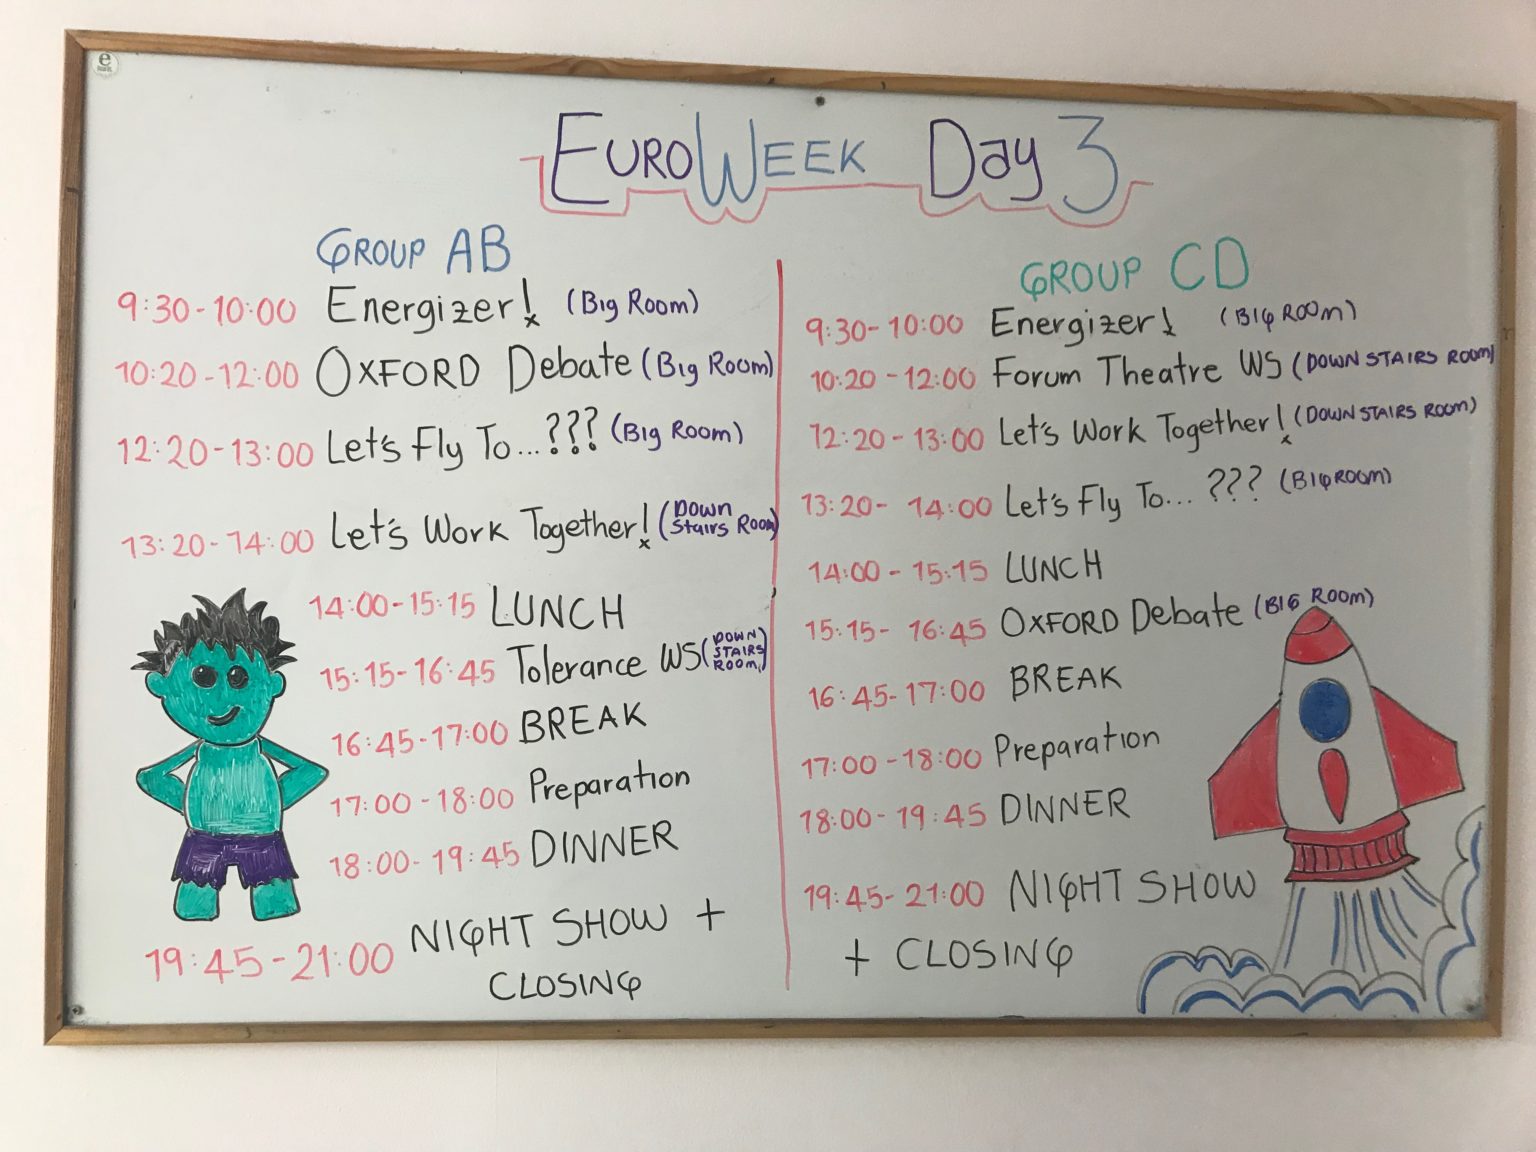 EUROWEEK Day 3
GROUP AB
9:30-10:00 Energizer! (Big Room)
10:20-12:00 OXFORD Debate (Big Room)
12:20-13:00 Let's Fly To...??? (Big Room)
13:20-14:00 Let's Work Together! (Down
Stairs Room)
14:00-15:15 LUNCH
15:15-16:45 Tolerance WS (DOWN
STAIRS
ROOM)
16:45-17:00 BREAK
17:00-18:00 Preparation
18:00-19:45 DINNER
19:45-21:00 NIGHT SHOW +
CLOSING
GROUP CD
9:30-10:00 Energizer! (BIG ROOM)
10:20-12:00 Forum Theatre WS (DOWN STAIRS ROOM)
12:20-13:00 Let's Work Together! (DOWN STAIRS ROOM)
13:20-14:00 Let's Fly To... ??? (BIG ROOM)
14:00-15:15 LUNCH
15:15-16:45 OXFORD Debate (BIG ROOM)
16:45-17:00 BREAK
17:00-18:00 Preparation
18:00-19:45 DINNER
19:45-21:00 NIGHT SHOW
+ CLOSING